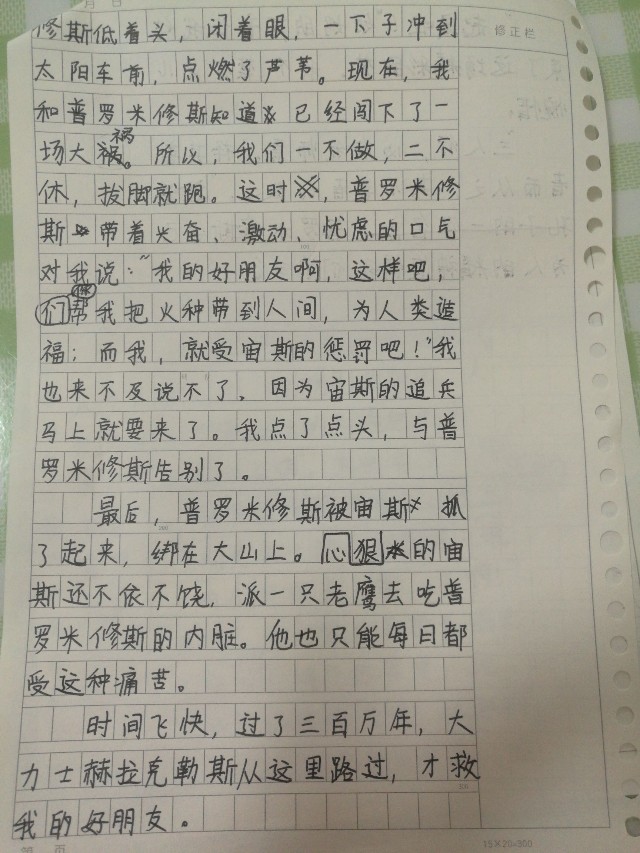 月 日
修正栏
修斯低着头，闭着眼，一下子冲到
太阳车前，点燃了芦苇。现在，我
和普罗米修斯知道已经闯下了一
场大祸。所以，我们一不做，二不
休，拔脚就跑。这时，普罗米修
斯带着兴奋、激动、忧虑的口气
对我说：“我的好朋友啊，这样吧，
你们帮我把火种带到人间，为人类造
福；而我，就受宙斯的惩罚吧！”我
也来不及说不了，因为宙斯的追兵
马上就要来了。我点了点头，与普
罗米修斯告别了。
最后，普罗米修斯被宙斯抓
了起来，绑在大山上。心狠的宙
斯还不依不饶，派一只老鹰去吃普
罗米修斯的内脏。他也只能每日都
受这种痛苦。
时间飞快，过了三百万年，大
力士赫拉克勒斯从这里路过，才救
我的好朋友。
第 页
15×20=300